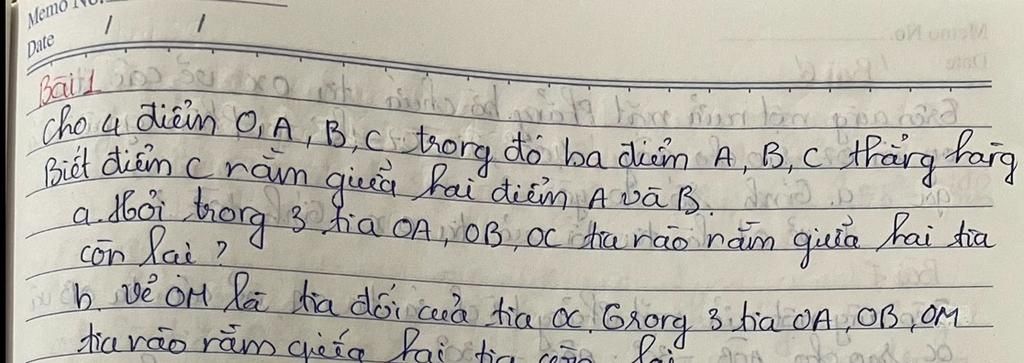 Memo No.
Date / /
Bài 1
Cho 4 điểm O, A, B, C trong đó ba điểm A, B, C thẳng hàng
Biết điểm C nằm giữa hai điểm A và B.
a. Hỏi trong 3 tia OA, OB, OC tia nào nằm giữa hai tia
còn lại ?
b. Vẽ OM là tia đối của tia OC. Trong 3 tia OA, OB, OM
tia nào nằm giữa hai tia còn lại